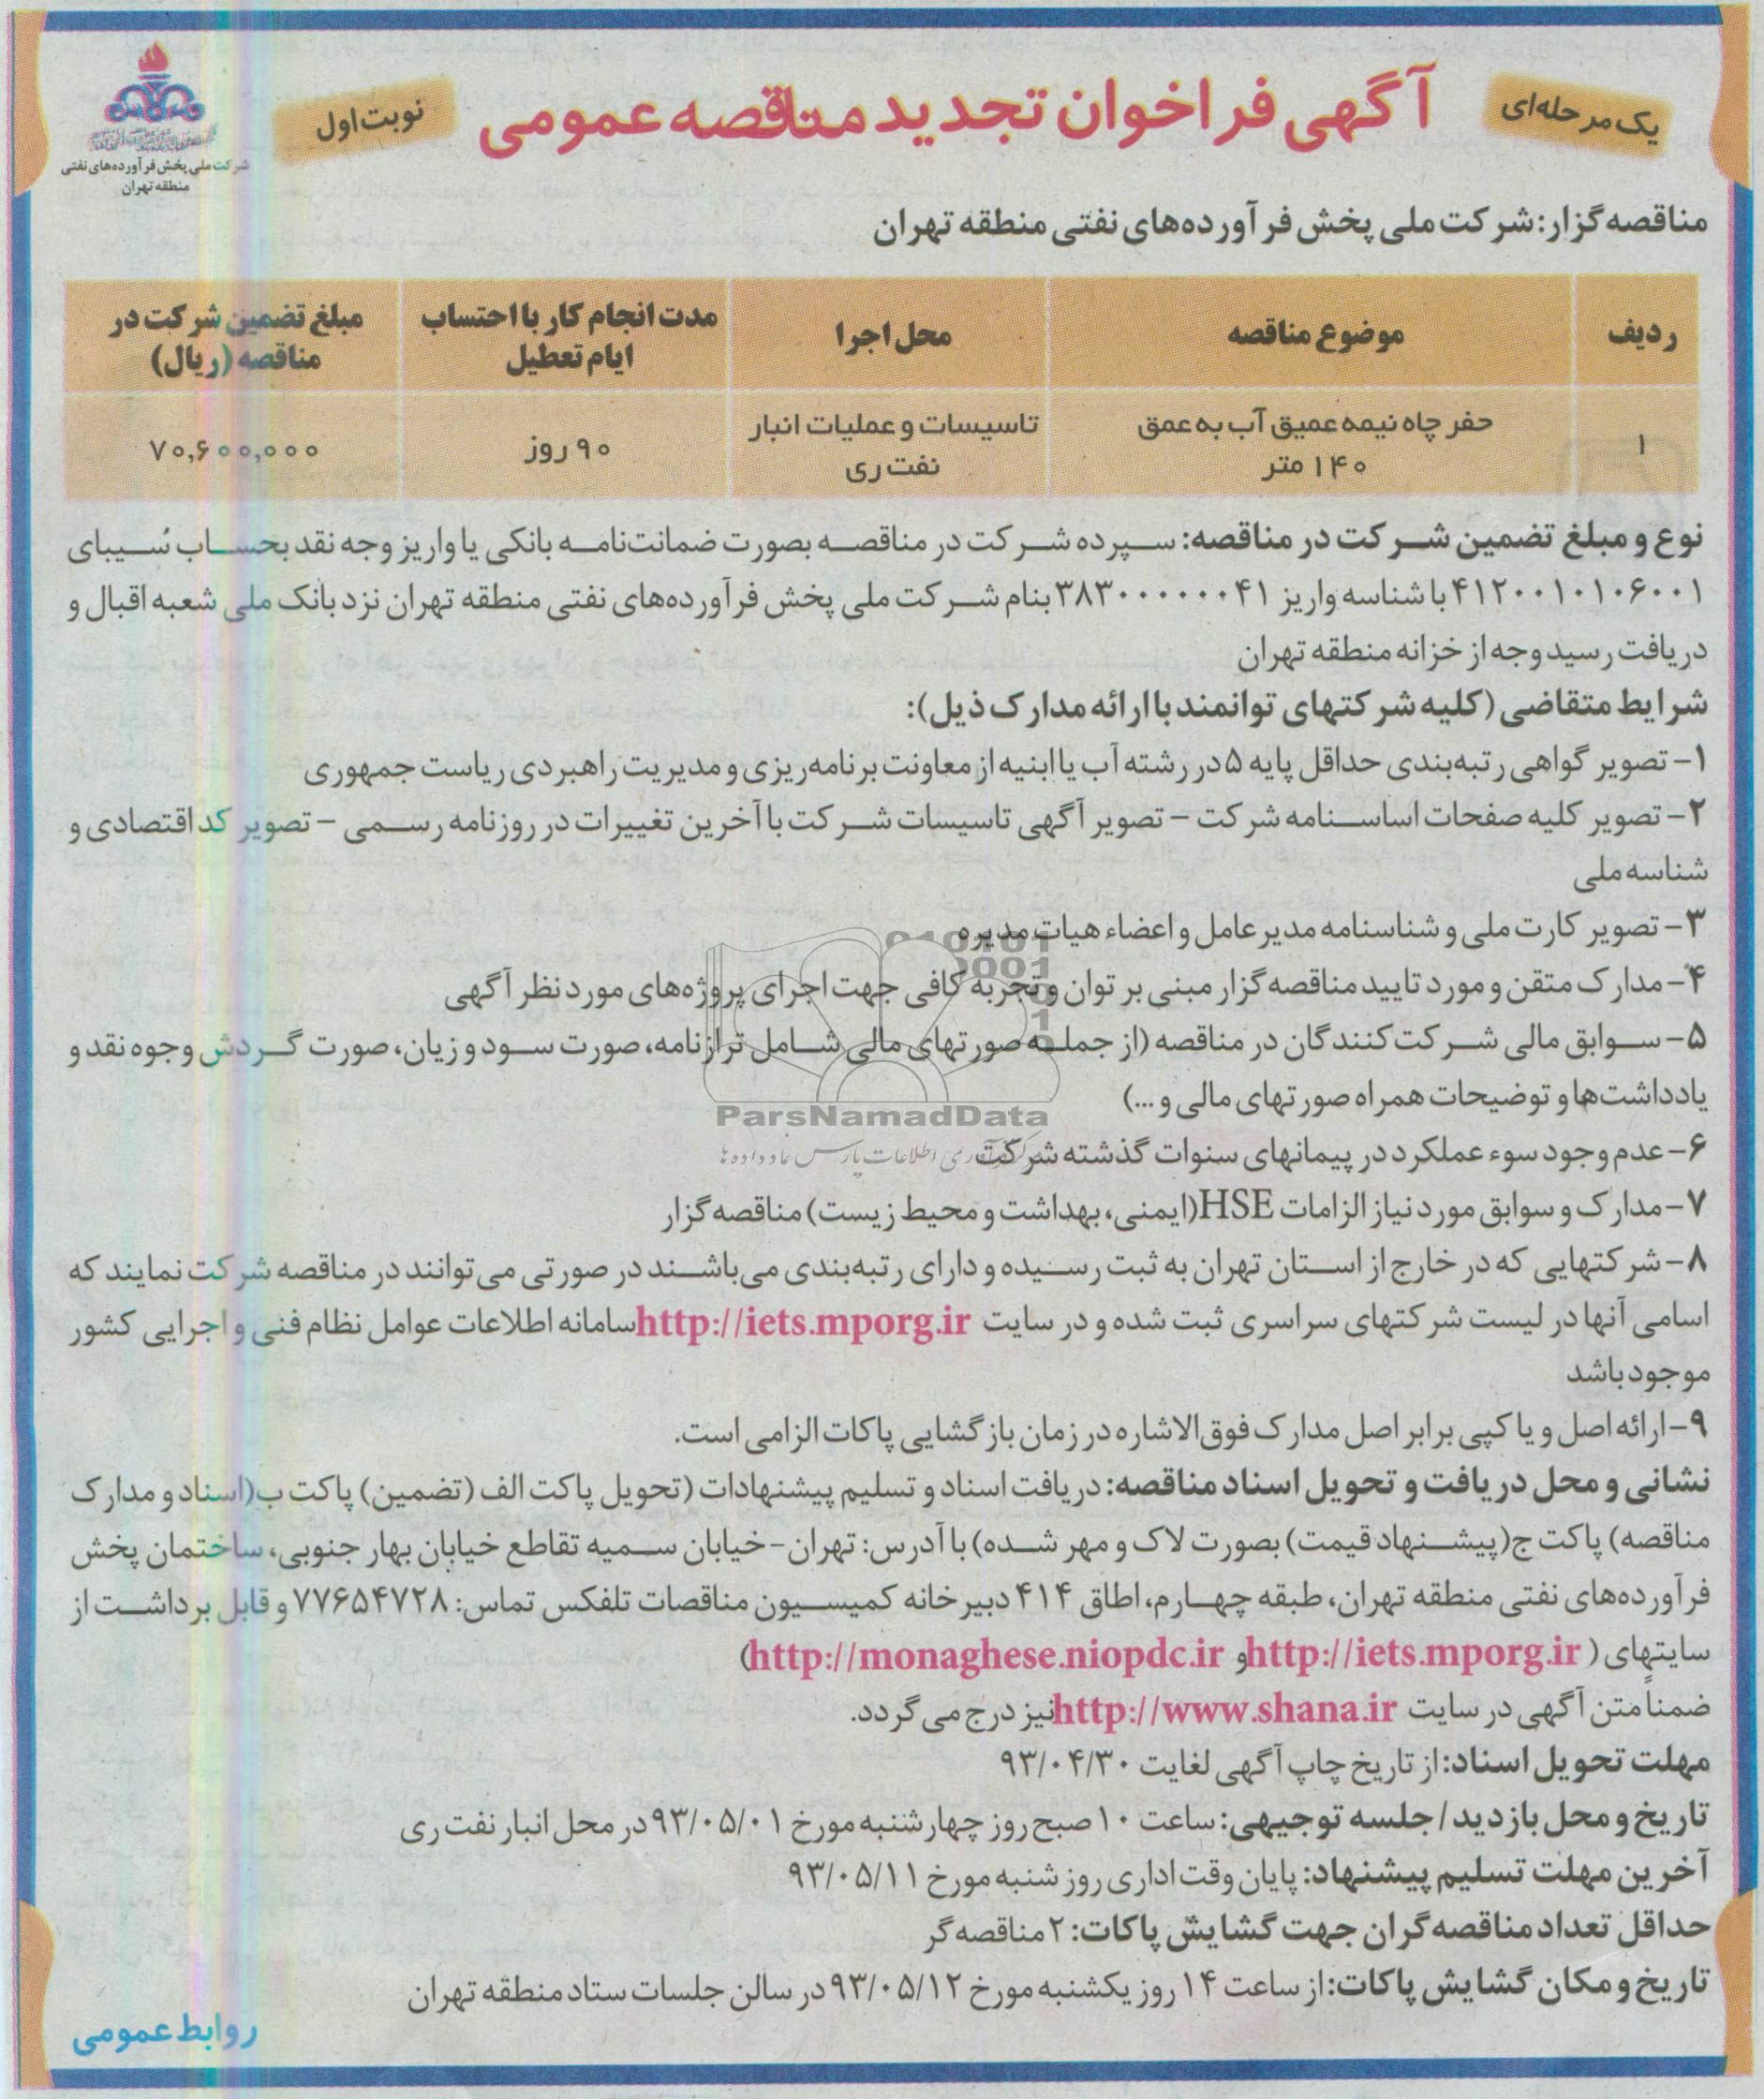 یک مرحله‌ای
آگهی فراخوان تجدید مناقصه عمومی
نوبت اول
شرکت ملی پخش فرآورده‌های نفتی
منطقه تهران
مناقصه گزار: شرکت ملی پخش فرآورده‌های نفتی منطقه تهران
ردیف	موضوع مناقصه	محل اجرا	مدت انجام کار با احتساب ایام تعطیل	مبلغ تضمین شرکت در مناقصه (ریال)
۱	حفر چاه نیمه عمیق آب به عمق ۱۴۰ متر	تاسیسات و عملیات انبار نفت ری	۹۰ روز	۷۰,۶۰۰,۰۰۰
نوع و مبلغ تضمین شرکت در مناقصه: سپرده شرکت در مناقصه بصورت ضمانت‌نامه بانکی یا واریز وجه نقد بحساب سیبای
۴۱۲۰۰۱۰۱۰۶۰۰۱ با شناسه واریز ۳۸۳۰۰۰۰۰۰۰۴۱ بنام شرکت ملی پخش فرآورده‌های نفتی منطقه تهران نزد بانک ملی شعبه اقبال و
دریافت رسید وجه از خزانه منطقه تهران
شرایط متقاضی (کلیه شرکتهای توانمند با ارائه مدارک ذیل):
۱- تصویر گواهی رتبه‌بندی حداقل پایه ۵ در رشته آب یا ابنیه از معاونت برنامه‌ریزی و مدیریت راهبردی ریاست جمهوری
۲- تصویر کلیه صفحات اساسنامه شرکت – تصویر آگهی تاسیسات شرکت با آخرین تغییرات در روزنامه رسمی – تصویر کد اقتصادی و
شناسه ملی
۳- تصویر کارت ملی و شناسنامه مدیر عامل و اعضاء هیات مدیره
۴- مدارک متقن و مورد تایید مناقصه گزار مبنی بر توان و تجربه کافی جهت اجرای پروژه‌های مورد نظر آگهی
۵- سوابق مالی شرکت کنندگان در مناقصه (از جمله صورتهای مالی شامل ترازنامه، صورت سود و زیان، صورت گردش وجوه نقد و
یادداشت‌ها و توضیحات همراه صورتهای مالی و ...)
ParsNamadData
۶- عدم وجود سوء عملکرد در پیمانهای سنوات گذشته شرکت
۷- مدارک و سوابق مورد نیاز الزامات HSE (ایمنی، بهداشت و محیط زیست) مناقصه گزار
۸- شرکتهایی که در خارج از استان تهران به ثبت رسیده و دارای رتبه‌بندی می‌باشند در صورتی می‌توانند در مناقصه شرکت نمایند که
اسامی آنها در لیست شرکتهای سراسری ثبت شده و در سایت http://iets.mporg.ir سامانه اطلاعات عوامل نظام فنی و اجرایی کشور
موجود باشد
۹- ارائه اصل و یا کپی برابر اصل مدارک فوق‌الاشاره در زمان بازگشایی پاکات الزامی است.
نشانی و محل دریافت و تحویل اسناد مناقصه: دریافت اسناد و تسلیم پیشنهادات (تحویل پاکت الف (تضمین) پاکت ب (اسناد و مدارک
مناقصه) پاکت ج (پیشنهاد قیمت) بصورت لاک و مهر شده) با آدرس: تهران - خیابان سمیه تقاطع خیابان بهار جنوبی، ساختمان پخش
فرآورده‌های نفتی منطقه تهران، طبقه چهارم، اطاق ۴۱۴ دبیرخانه کمیسیون مناقصات تلفکس تماس: ۷۷۶۵۴۷۲۸ و قابل برداشت از
سایتهای ( http://iets.mporg.ir و http://monaghese.niopdc.ir)
ضمناً متن آگهی در سایت http://www.shana.ir نیز درج می گردد.
مهلت تحویل اسناد: از تاریخ چاپ آگهی لغایت ۹۳/۰۴/۳۰
تاریخ و محل بازدید / جلسه توجیهی: ساعت ۱۰ صبح روز چهارشنبه مورخ ۹۳/۰۵/۰۱ در محل انبار نفت ری
آخرین مهلت تسلیم پیشنهاد: پایان وقت اداری روز شنبه مورخ ۹۳/۰۵/۱۱
حداقل تعداد مناقصه گران جهت گشایش پاکات: ۲ مناقصه گر
تاریخ و مکان گشایش پاکات: از ساعت ۱۴ روز یکشنبه مورخ ۹۳/۰۵/۱۲ در سالن جلسات ستاد منطقه تهران
روابط عمومی